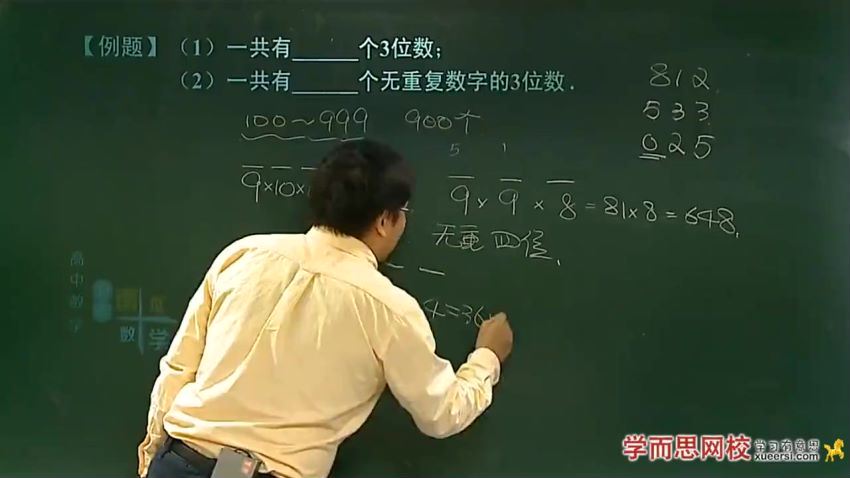 【例题】（1）一共有______个3位数；
（2）一共有______个无重复数字的3位数．
812
533
025
100～999 900个
5 1
9×10×
9 × 9 × 8 = 81×8 = 648.
无重 四位.
4=36
高中数学
数学
学而思网校 学习有意思
xueersi.com